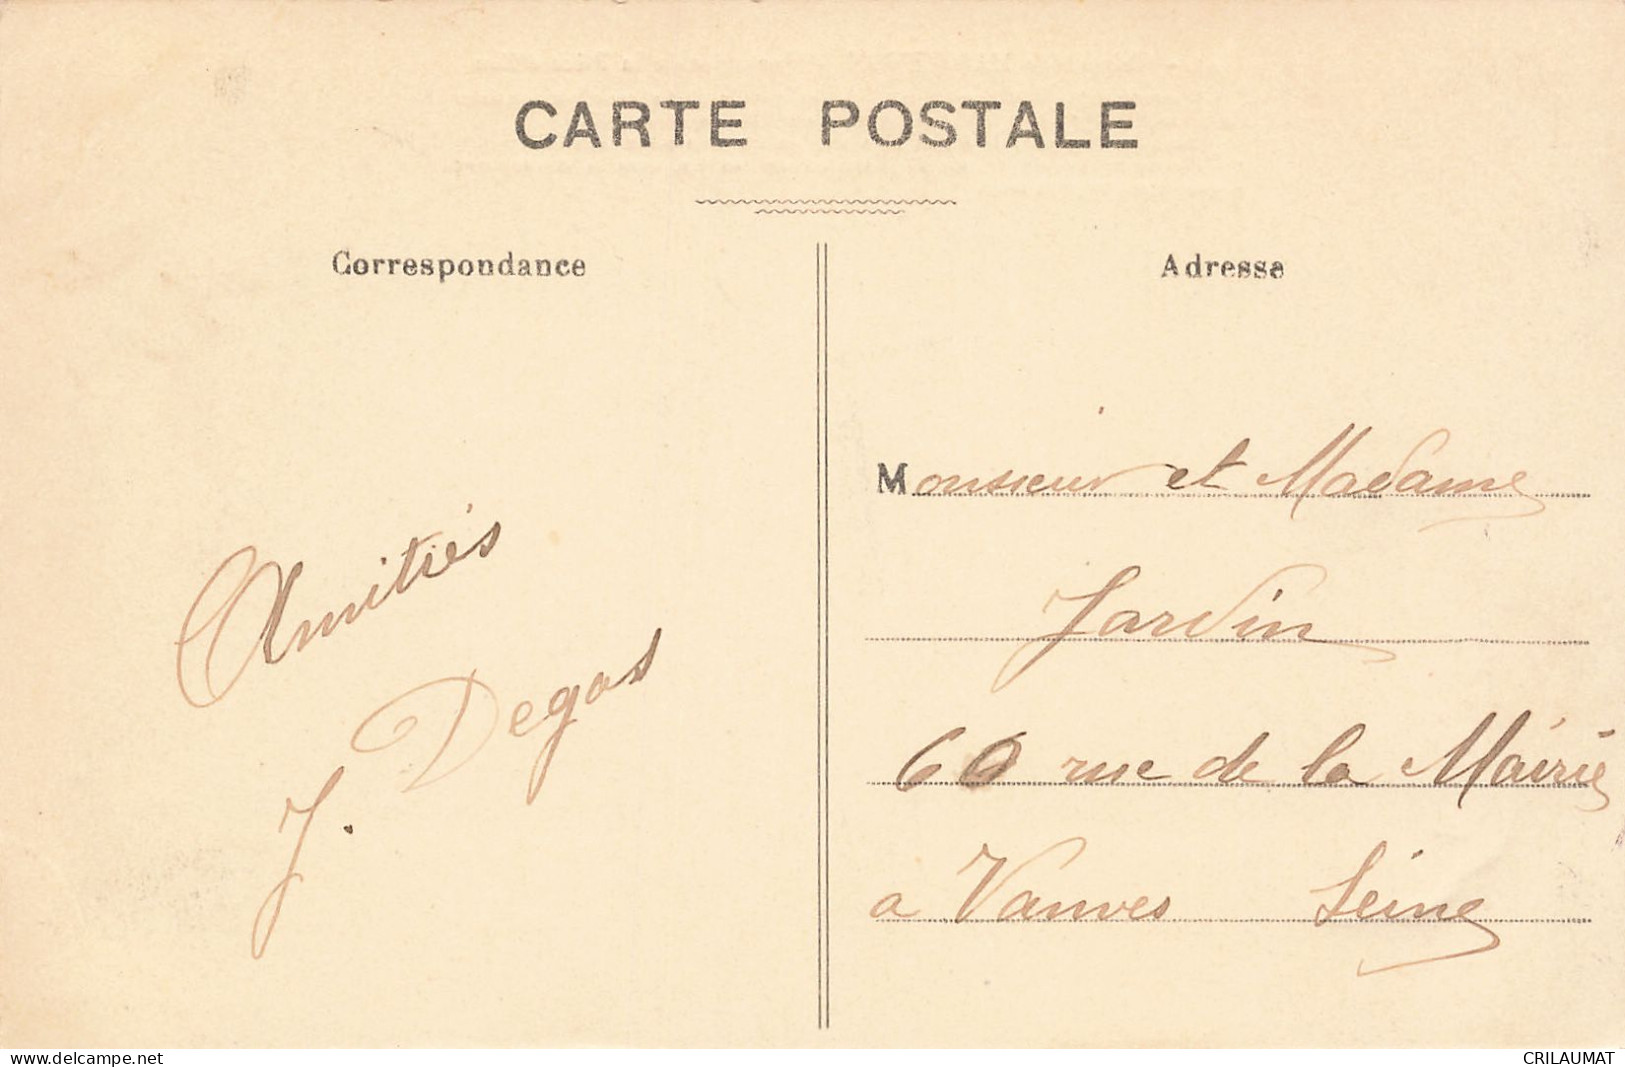 CARTE POSTALE
Correspondance
Amitiés
J. Degas
Adresse
Monsieur et Madame
Jardin
60 rue de la Mairie
a Vanves Seine
www.delcampe.net
CRILAUMAT